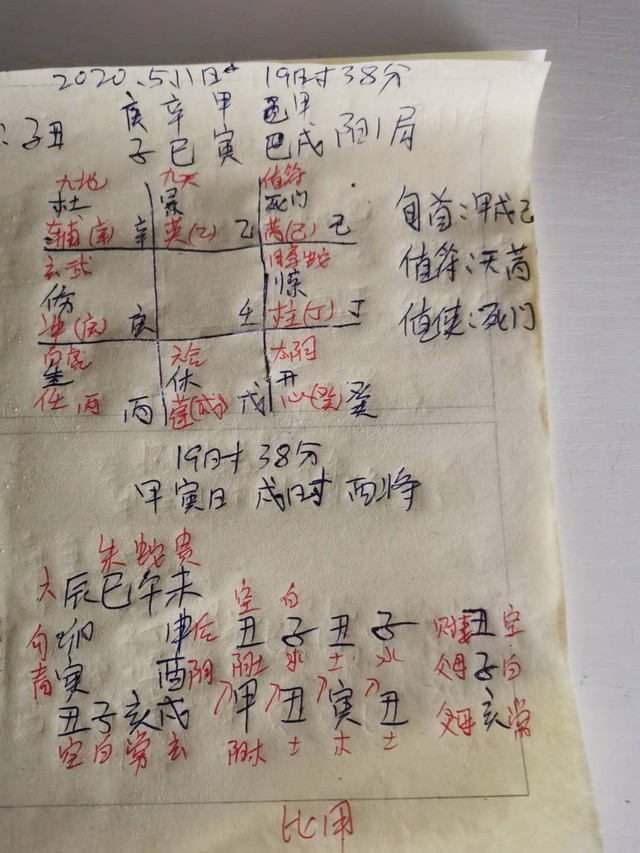 2020.5.11日 19时38分
庚 辛 甲 甲
:子丑 子 巳 寅 戌 阳1局
九地 九天 值符
杜 景 死门
辅(辛) 辛 英(乙) 乙 芮(己) 己
旬首:甲戌己
玄武 螣蛇
伤 惊
冲(庚) 庚 壬 柱(丁) 丁
值符:天芮
值使:死门
白虎 六合 太阴
生 休 开
任 丙 丙 蓬(戊) 戊 心(癸) 癸
19时38分
甲寅日 戌时 酉将
朱 蛇 贵
六 辰 巳 午 未 空 白
勾 卯 申 后 丑 子 丑 子 财 丑 空
阴土 水 土 水
青 寅 酉 阴 父母 子 白
丑 子 亥 戌 甲 丑 寅 丑 父母 亥 常
空 白 常 玄 阳木 土 木 土
比用